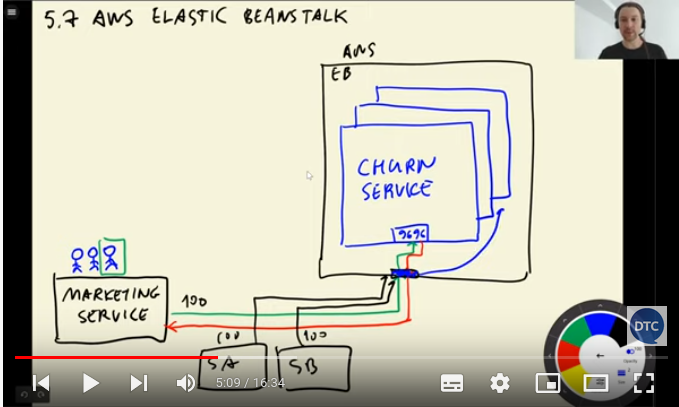 5.7 AWS ELASTIC BEANSTALK
AWS
EB
CHURN
SERVICE
9696
MARKETING
SERVICE
100
100
100
SA
SB
DTC
5:09 / 16:34